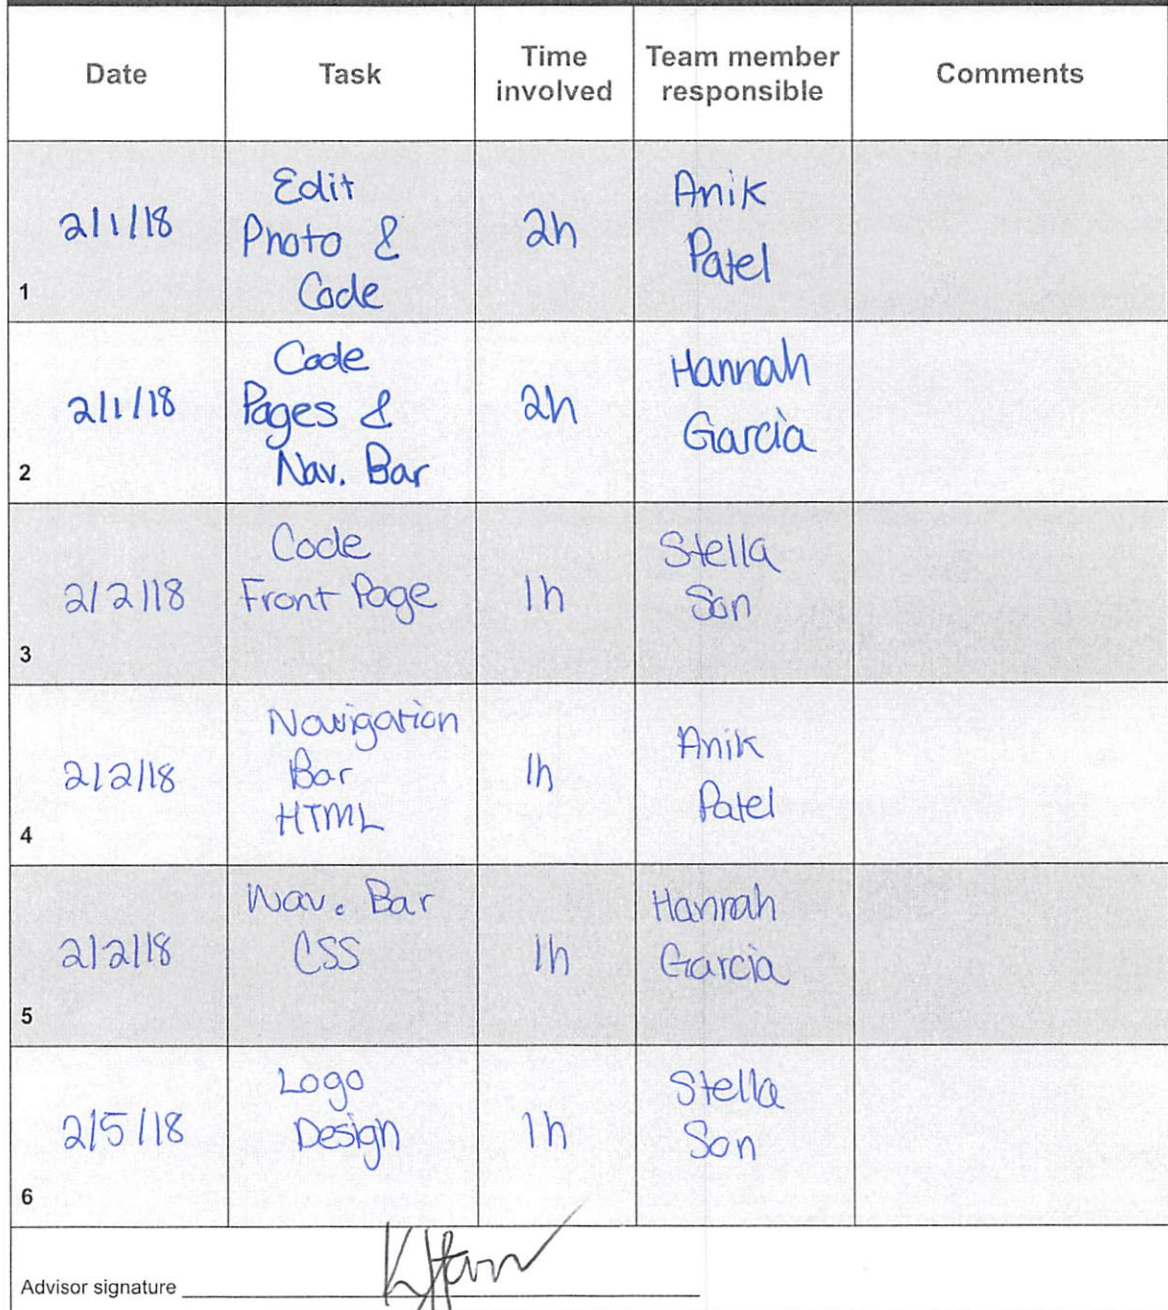 Date Task Time involved Team member responsible Comments
1 2/1/18 Edit Photo & Code 2h Anik Patel
2 2/1/18 Code Pages & Nav. Bar 2h Hannah Garcia
3 2/2/18 Code Front Page 1h Stella Son
4 2/2/18 Navigation Bar HTML 1h Anik Patel
5 2/2/18 Nav. Bar CSS 1h Hannah Garcia
6 2/5/18 Logo Design 1h Stella Son
Advisor signature